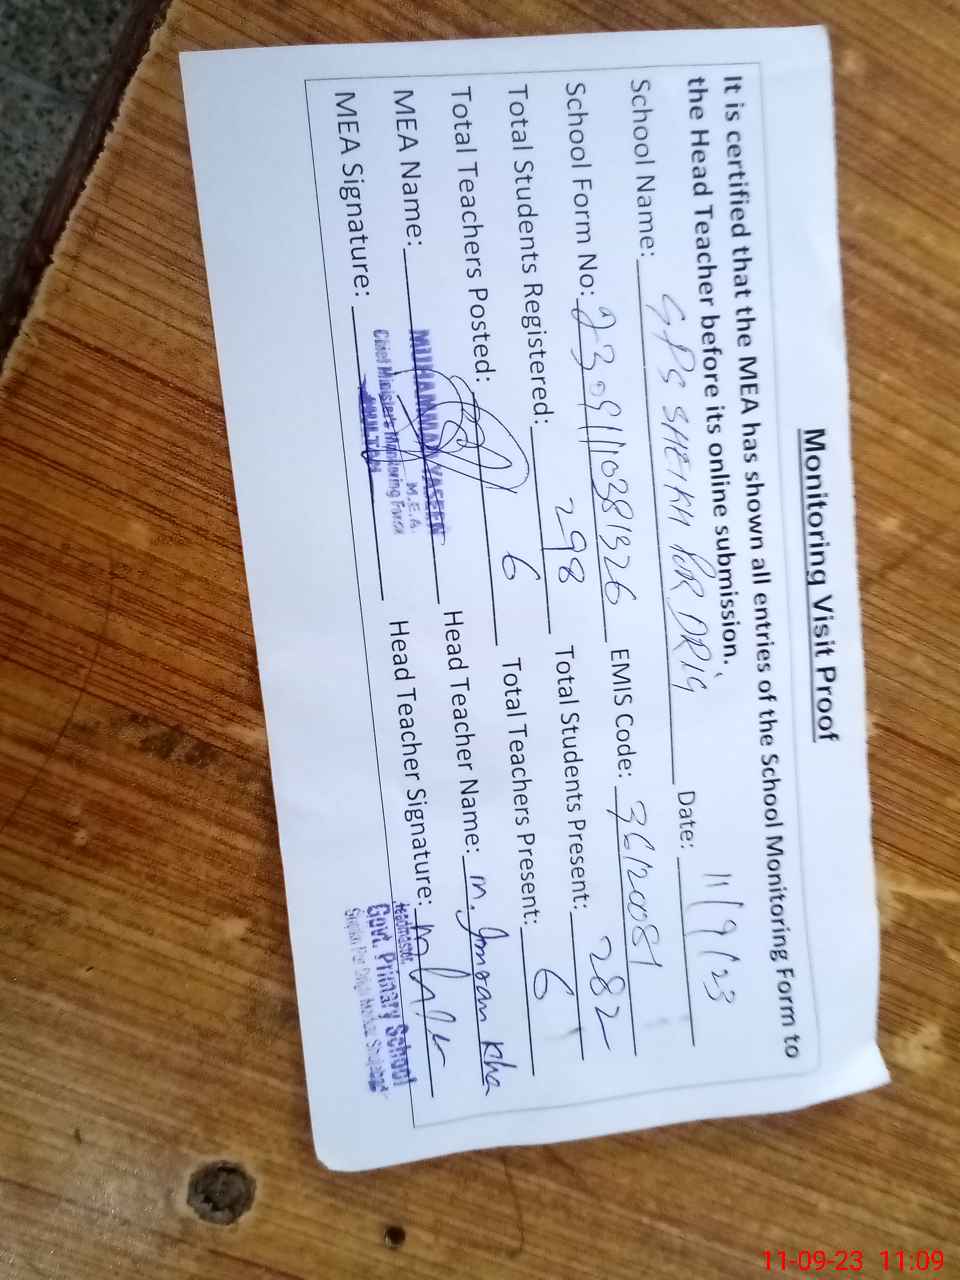 Monitoring Visit Proof
It is certified that the MEA has shown all entries of the School Monitoring Form to
the Head Teacher before its online submission.
School Name: GPS SHEIKH PUR DRIG Date: 11/9/23
School Form No: 2309110381326 EMIS Code: 36120081
Total Students Registered: 298 Total Students Present: 282
Total Teachers Posted: 6 Total Teachers Present: 6
MEA Name: MUHAMMAD YASEEN Head Teacher Name: M. Imran Kha
M.E.A.
Chief Minister's Monitoring Force
MULTAN
MEA Signature: Head Teacher Signature:
Headmaster
Govt. Primary School
11-09-23 11:09